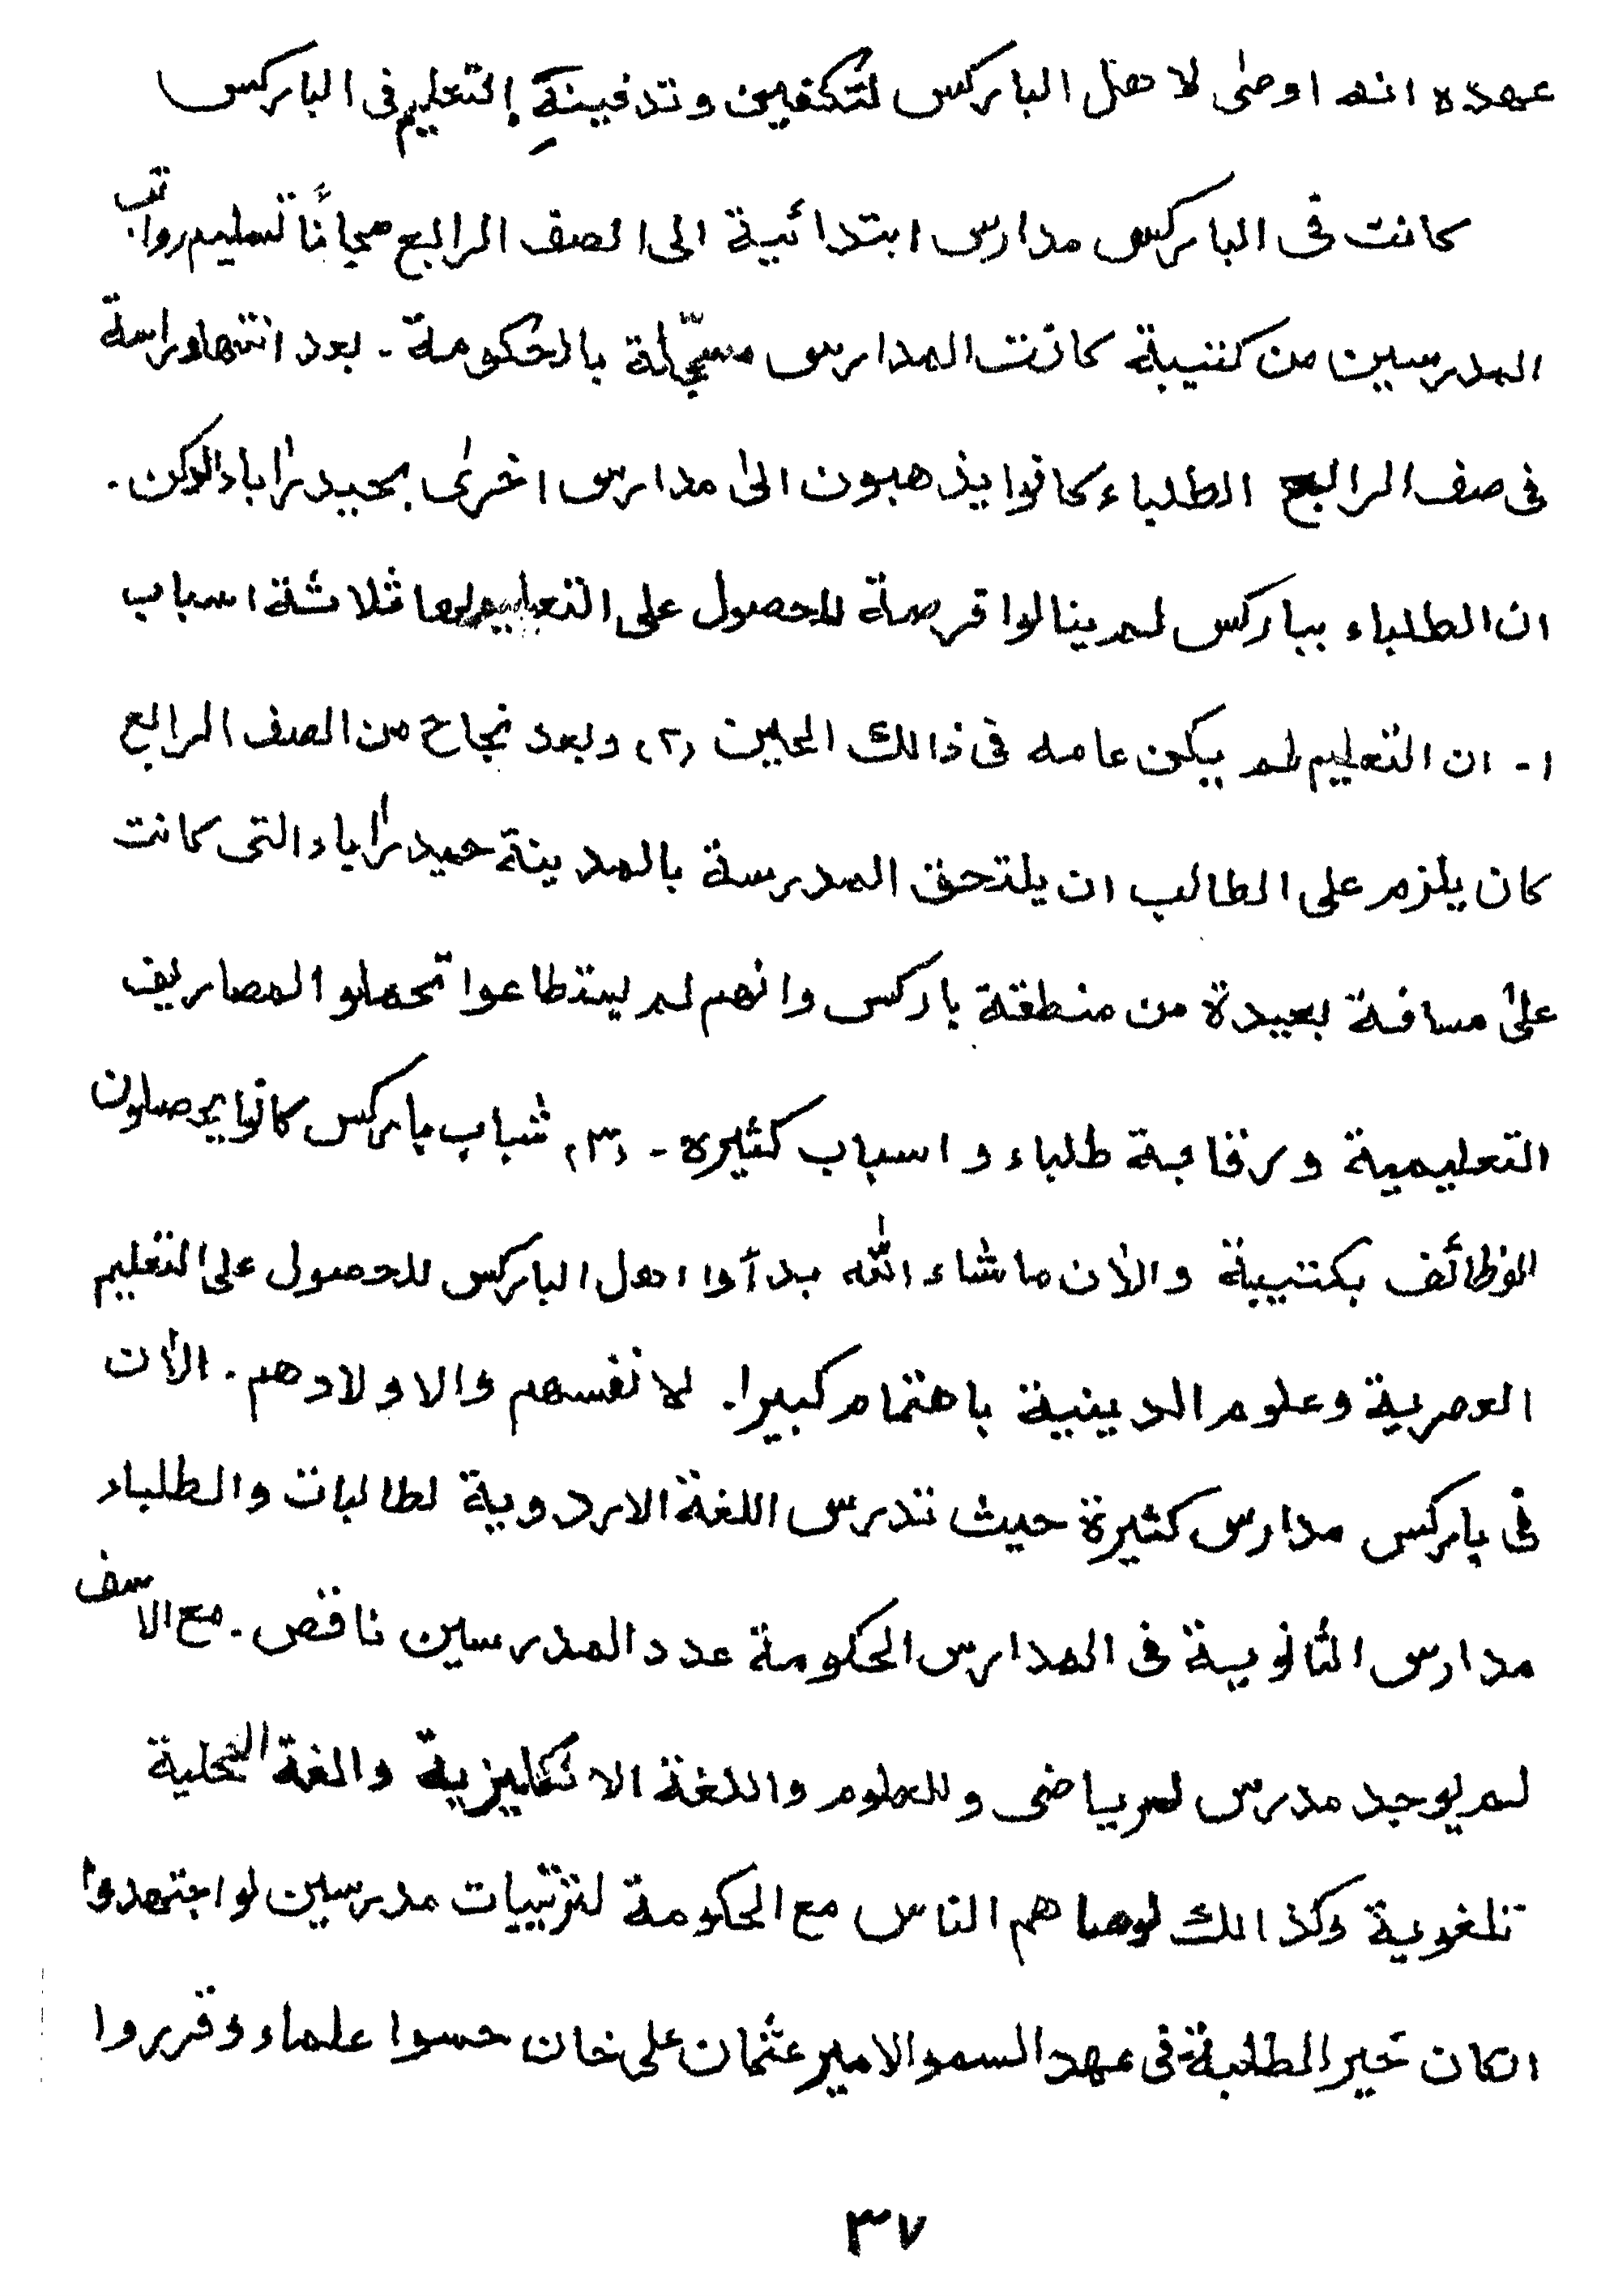 عهده انه اوصٰى لاهل الباركس لتكفين وتدفينهٖ التعليم فى الباركس
كانت فى الباركس مدارس ابتدائية الى الصف الرابع مجانًا تسليم رواتب
المدرسين من كتيبة كانت المدارس مسجّلة بالحكومة - بعد انتهاء دراسة
فى صف الرابع الطلباء كانوا يذهبون الىٰ مدارس اخرىٰ بحيدرٰاباد الدكن -
ان الطلباء بباركس لم ينالوا فرصة للحصول على التعليم لها ثلاثة اسباب
١- ان التعليم لم يكن عامه فى ذالك الحين (٢) وبعد نجاح من الصف الرابع
كان يلزم على الطالب ان يلتحق المدرسة بالمدينة حيدرٰاباد التى كانت
علىٰ مسافة بعيدة من منطقة باركس وانهم لم ليتطاعوا تحملوا المصاريف
التعليمية ورقابة طلباء و اسباب كثيره - (٣) شباب باركس كانوا يحصلون
الوظائف بكتيبة والاٰن ماشاء اللّٰه بدأوا اهل الباركس للحصول على التعليم
العصرية وعلوم الدينية باهتمام كبيرا. لانفسهم والاولادهم. الاٰن
فى باركس مدارس كثيرة حيث تدرس اللغة الاردوية لطالبات والطلباء
مدارس الثانوية فى المدارس الحكومة عدد المدرسين ناقص - مع الاسف
لم يوجد مدرس لرياضى وللعلوم واللغة الانكليزية والغة المحلية
تلغوية وكذالك لوصاهم الناس مع الحكومة لترتيبات مدرسين لو اجتهدوا
الكان خير الطلبة فى عهد السمو الامير عثمان على خان حسوا علماء وقرروا
٣٧